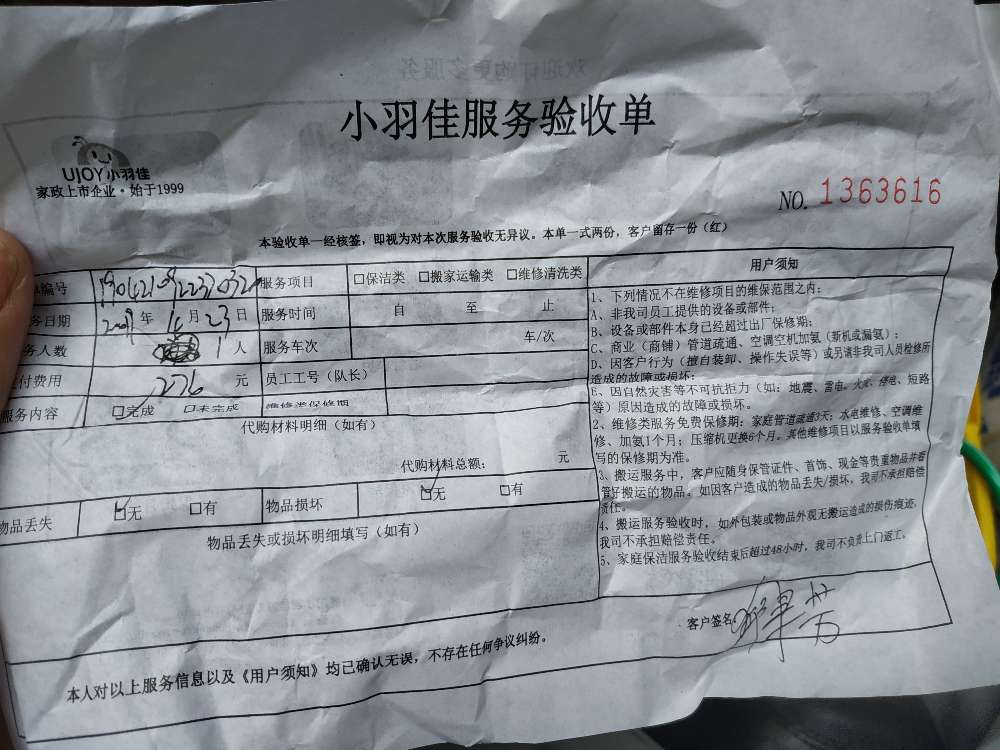 小羽佳服务验收单
UJOY小羽佳
家政上市企业·始于1999
NO. 1363616
本验收单一经核签，即视为对本次服务验收无异议。本单一式两份，客户留存一份（红）
编号
服务项目 □保洁类 □搬家运输类 □维修清洗类
务日期 年 月 23 日
服务时间 自 至 止
务人数 1 人
服务车次 车/次
付费用 276 元
员工工号（队长）
服务内容 □完成 □未完成
维修类保修期
代购材料明细（如有）
代购材料总额： 元
物品丢失 ☑无 □有
物品损坏 ☑无 □有
物品丢失或损坏明细填写（如有）
用户须知
1、下列情况不在维修项目的维保范围之内：
A、非我司员工提供的设备或部件；
B、设备或部件本身已经超过出厂保修期；
C、商业（商铺）管道疏通、空调空机加氨（新机或漏氨）；
D、因客户行为（擅自装卸、操作失误等）或另请非我司人员检修所
造成的故障或损坏；
E、因自然灾害等不可抗拒力（如：地震、雷电、火灾、停电、短路
等）原因造成的故障或损坏。
2、维修类服务免费保修期：家庭管道疏通3天；水电维修、空调维
修、加氨1个月；压缩机更换6个月。其他维修项目以服务验收单填
写的保修期为准。
3、搬运服务中，客户应随身保管证件、首饰、现金等贵重物品并看
管好搬运的物品。如因客户造成的物品丢失/损坏，我司不承担赔偿
责任。
4、搬运服务验收时，如外包装或物品外观无搬运造成的损伤痕迹，
我司不承担赔偿责任。
5、家庭保洁服务验收结束后超过48小时，我司不负责上门返工。
客户签名
本人对以上服务信息以及《用户须知》均已确认无误，不存在任何争议纠纷。